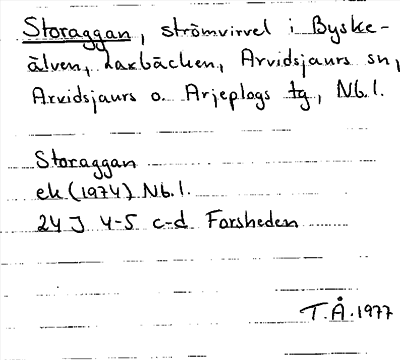 Storaggan, strömvirvel i Byske-
älven, Laxbäcken, Arvidsjaurs sn,
Arvidsjaurs o. Arjeplogs tg, Nb.l.
Storaggan
ek (1974) Nb.l.
24 J 4-5 c-d Forsheden
T.Å. 1977